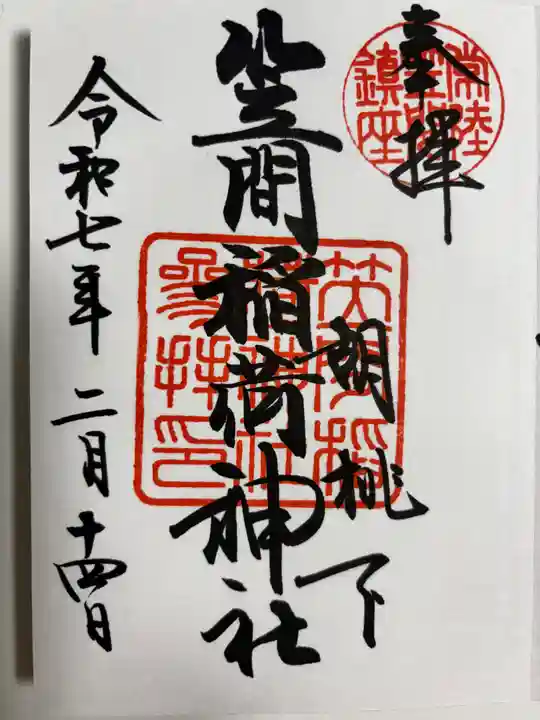 奉拝
常陸
笠間
鎮座
胡桃下
笠間稲荷神社
参拝印
令和七年二月十四日